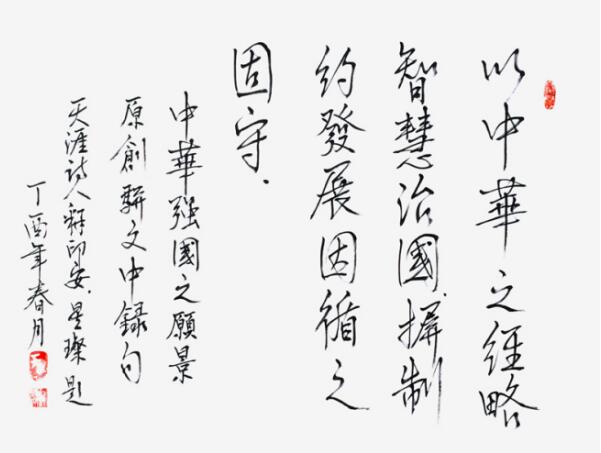 以中華之经略
智慧治國摒制
约發展因循之
固守.
中華强國之願景
原創骈文中録句
天涯詩人釋印安.星璨题
丁酉年春月